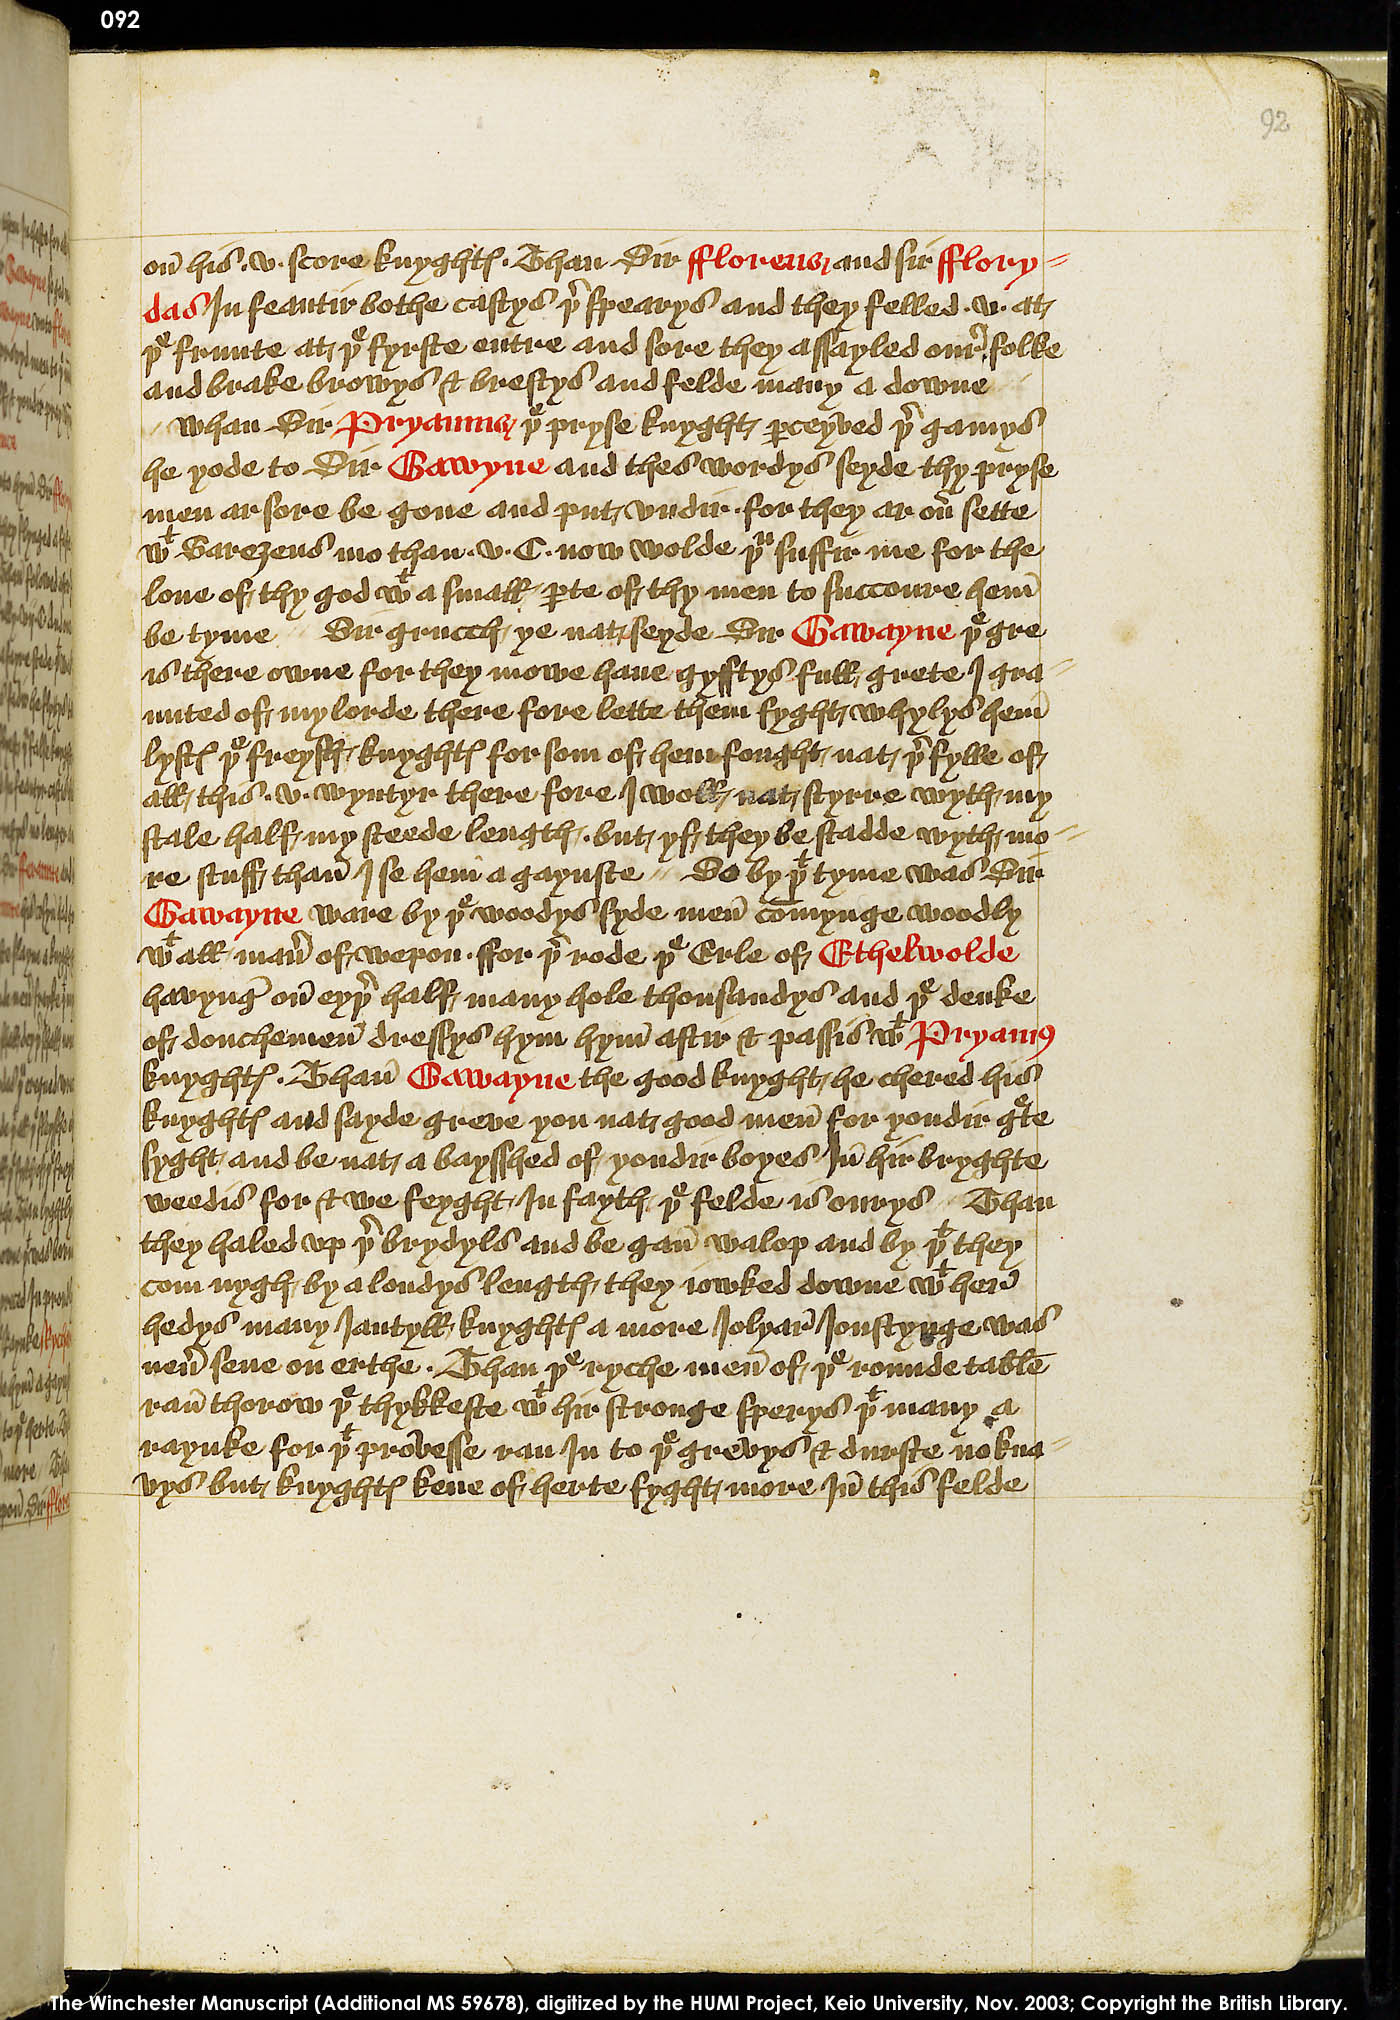 092
92
ou͞ his .v. score knyghtꝭ. Than Sir fflorens and sir fflory=
das In feautir bothe castys þʳ spearys and they felled .v. at
þᵉ frunte at þᵉ fyrste entre and sore they assayled ourͬ folke
and brake browys & brestys and felde many a downe
whan Sir Pryamus þᵉ pryse knyght ꝑceyved þʳ gamys
he yode to Sir Gawyne and thes wordys seyde thy pryse
men ar sore be gone and put vndir for they ar ou͞ sette
wᵗ Sarezens mo than .v.C. now wolde þᵘ suffir me for the
love of thy god wᵗ a small ꝑte of thy men to succoure hem̄
be tyme Sir grucch ye nat seyde Sir Gawayne þᵉ gre
is there owne for they mowe have gyfftys full grete I gra=
unted of my lorde there fore lette them fyght whylys hem̄
lystꝭ þᵉ freyssh knyghtꝭ for som of hem fought nat þʳ fylle of
all this .v. wyntyr there fore I woll nat styrre wyth my
stale half my steede length. but yf they be stadde wyth mo=
re stuff than̄ I se hem̄ a gaynste So by þᵗ tyme was Sir
Gawayne ware by þᵉ woodys syde men̄ com̄ynge woodly
wᵗ all man̄ of wepon. ffor þʳ rode þᵉ Erle of Ethelwolde
havyng ou͞ eyþʳ half many hole thousandys and þᵉ deuke
of douchemen̄ dressys hym hym̄ aftir & passis wᵗ Pryamꝰ
knyghtꝭ. Than̄ Gawayne the good knyght he chered his
knyghtꝭ and sayde greve you nat good men̄ for yondir gᵉte
syght and be nat a baysshed of yondir boyes In̄ hir bryghte
weedis for & we feyght In fayth þᵉ felde is ourys Than
they haled vp þʳ brydyls and be gan̄ walop and by þᵗ they
com nygh by a londys length they iowked downe wᵗ her̄
hedys many Jantyll knyghtꝭ a more Jolyar̄ Joustynge was
neu͞ sene on erthe. Than þᵉ ryche men̄ of þᵉ rounde table
ran̄ thorow þᵉ thykkeste wᵗ hir stronge sperys þᵗ many a
raynke for þᵗ provesse ran In to þᵉ grevys & durste no kna=
vys but knyghtꝭ kene of herte fyght more In̄ this felde
The Winchester Manuscript (Additional MS 59678), digitized by the HUMI Project, Keio University, Nov. 2003; Copyright the British Library.